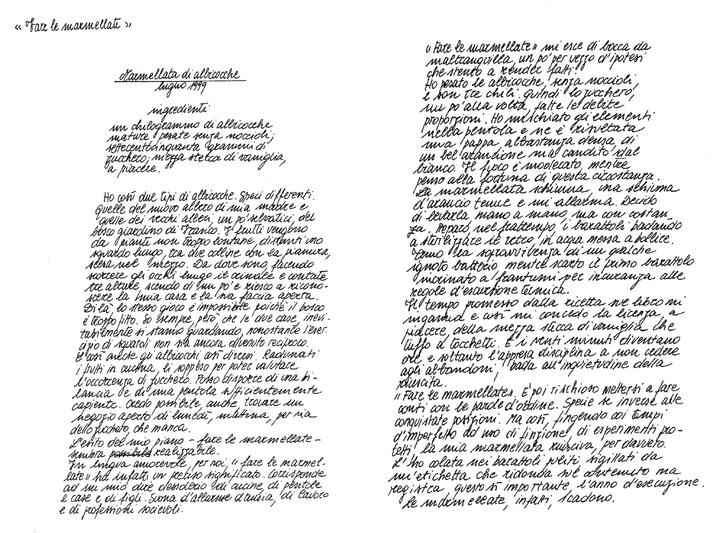 « Fare le marmellate »
Marmellata di albicocche
luglio 1999
ingredienti
un chilogrammo di albicocche
mature pesate senza noccioli;
settecentocinquanta grammi di
zucchero; mezza stecca di vaniglia,
a piacere.
Ho così due tipi di albicocche. Speci differenti.
Quelle del nuovo albero di mia madre e
quelle dei vecchi alberi, un po' selvatici, del
bosco giardino di Franco. I frutti vengono
da piante non troppo lontane, distanti uno
sguardo lungo, tra due colline con la pianura,
stesa nel mezzo. Da dove sono, facendo
scorrere gli occhi lungo le annate e contate
tre alture, scendo di un po' e riesco a ricono-
scere la mia casa e la sua faccia aperta.
Di là lo stesso gioco è impossibile poiché il bosco
è troppo fitto. Lo sempre, però che le due case, inevi-
tabilmente si stanno guardando, nonostante l'eser-
cizio di sguardi non sia ancora divenuto reciproco.
E così anche gli albicocchi, così diversi. Radunati
i frutti in cucina, li soppeso per poter valutare
l'occorrenza di zucchero. Posso disporre di una bi-
lancia e di una pentola sufficientemente
capiente. Credo possibile anche trovare un
negozio aperto di lunedì, mattina, per via
dello zucchero che manca.
L'esito del mio piano - fare le marmellate -
sembra realizzabile.
In lingua amorevole, per noi, "fare le marmel-
late" ha infatti un preciso significato. Corrisponde
ad un mio dire desiderio di cucine, di pentole
e case e di figli. Suona d'allarme d'ansia, di lavoro
e di professioni socievoli.
« Fare le marmellate » mi esce di bocca da
maltranquilla, un po' per vezzo d'ipotesi
che stento a render fatti.
Ho pesato le albicocche, senza noccioli,
e son tre chili. Quindi lo zucchero,
un po' alla volta, fatte le debite
proporzioni. Ho mischiato gli elementi
nella pentola e ne è risultata
una pappa, abbastanza densa, di
un bell'arancione mal candito dal
bianco. Il fuoco è moderato, mentre
penso alla fortuna di questa circostanza.
La marmellata schiuma, una schiuma
d'arancio tenue e mi allarma. Decido
di levarla mano a mano, ma con costan-
za. Preparo nel frattempo, i barattoli badando
a sterilizzare il vetro, in acqua messa a bollire.
Temo la sopravvivenza di un qualche
ignoto batterio mentre scarto il primo barattolo
rovinato a frantumi per incuranza alle
regole d'escursione termica.
Il tempo promesso dalla ricetta nel libro mi
inganna e così mi concedo la licenza, a
piacere, della mezza stecca di vaniglia che
tuffo a tocchetti. E i venti minuti diventano
ore e soltanto l'appresa disciplina a non cedere
agli abbandoni, bada all'inquietudine della
riuscita.
"Fare le marmellate". È poi rischioso mettersi a fare
conti con le parole d'ordine. Specie se inverse alle
conquistate posizioni. Ma così, fingendo coi tempi
d'imperfetto ad uso di finzione, di esperimenti pro-
tetti, la mia marmellata riusciva, per davvero.
L'ho colata nei barattoli puliti sigillati da
un'etichetta che ridonda sul contenuto ma
registra, questo sì importante, l'anno d'esecuzione.
Le marmellate, infatti, scadono.